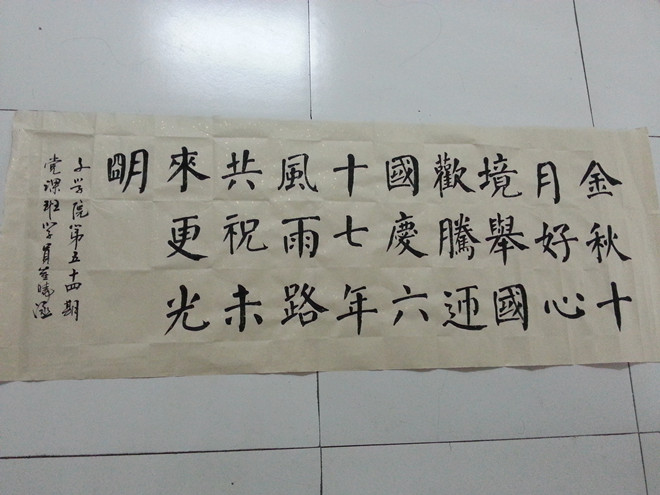 金秋十
月好心
境舉國
歡騰迊
國慶六
十七年
風雨路
共祝未
來更光
明
文学院第五十四期
党课班学員